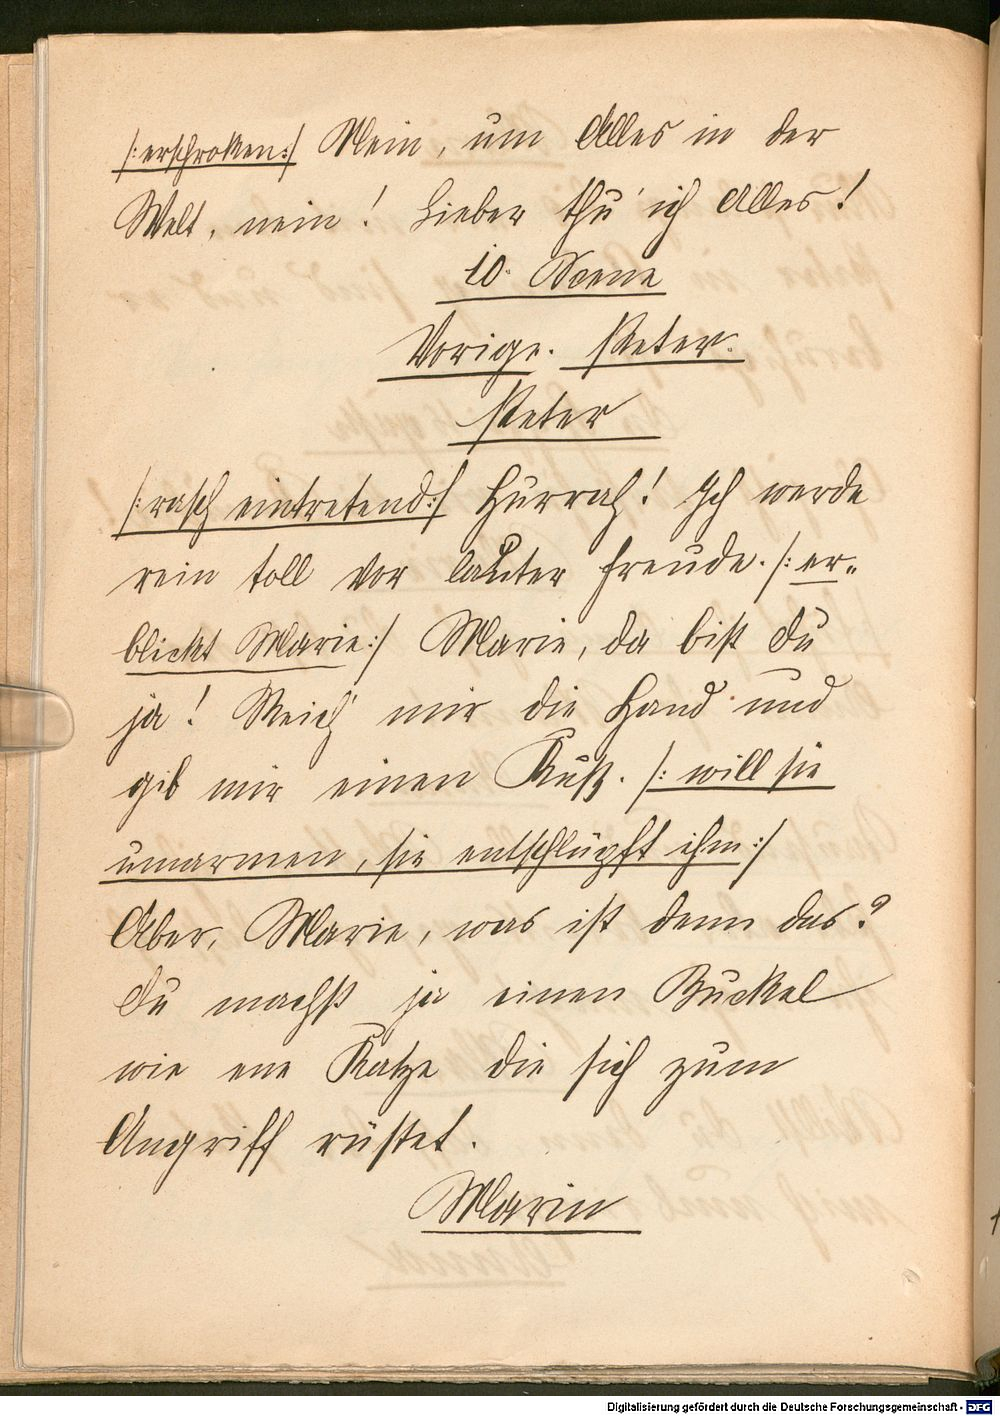 /: erschroken:/ Nein, um Alles in der
Welt, nein! Lieber thu' ich Alles!
10. Scene
Vorige. Peter.
Peter
/: rasch eintretend:/ Hurrah! Ich werde
rein toll vor lauter Freude. /: er-
blickt Marie:/ Marie, da bist Du
ja! Reich' mir die Hand und
gib mir einen Kuß. /: will sie
umarmen, sie entschlüpft ihm:/
Aber, Marie, was ist denn das?
Du machst ja einen Buckel
wie ene Katze die sich zum
Angriff rüstet.
Marie
Digitalisierung gefördert durch die Deutsche Forschungsgemeinschaft - DFG